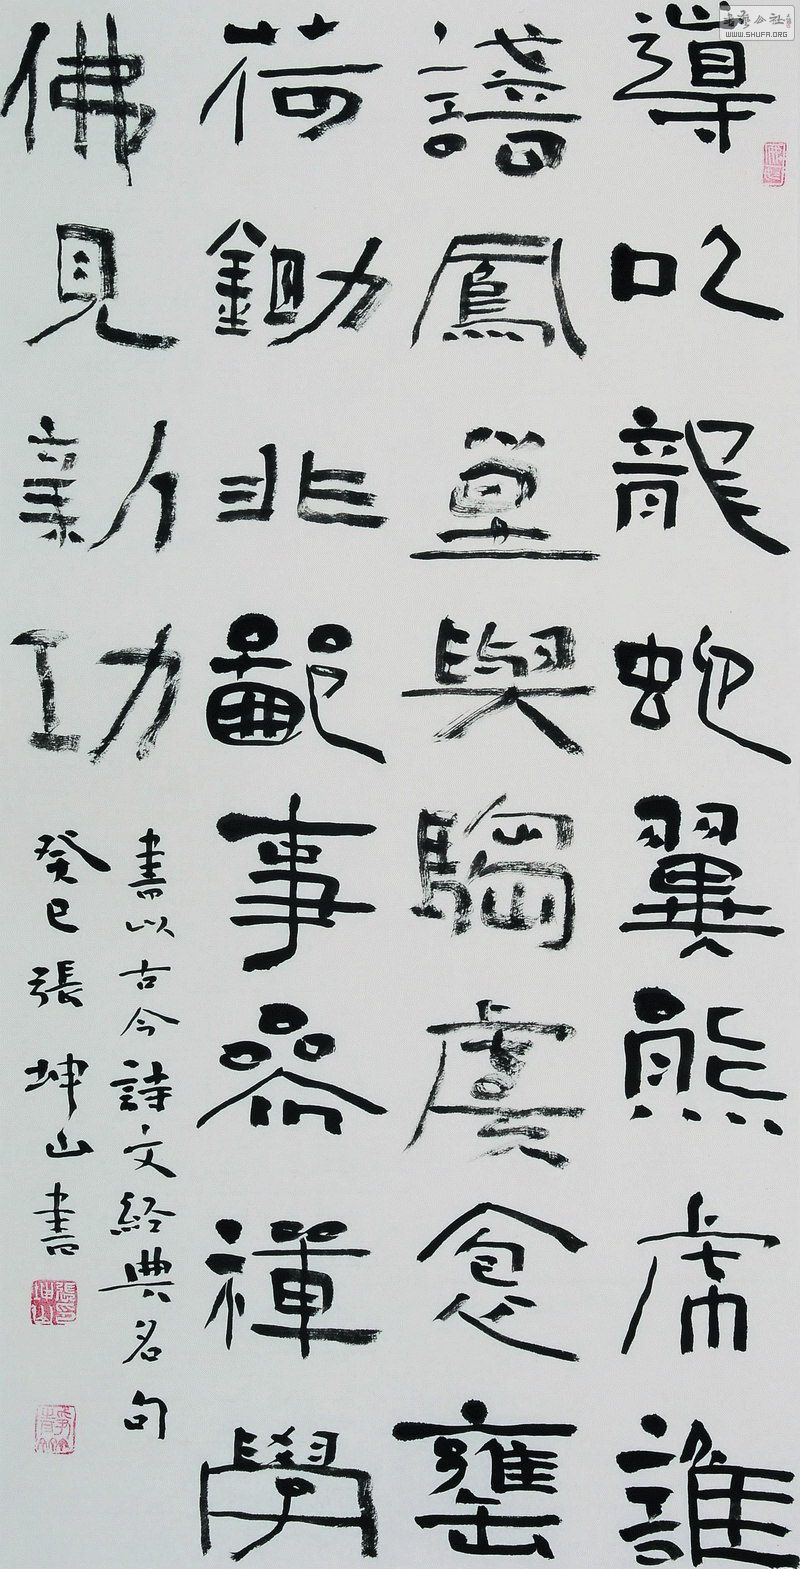 導以龍蛇翼熊虎誰
識鳳皇與騶虞罋
荷鋤非鄙事參禪學
佛見新功
書以古今詩文經典名句
癸巳張坤山書
書藝公社
WWW.SHUFA.ORG